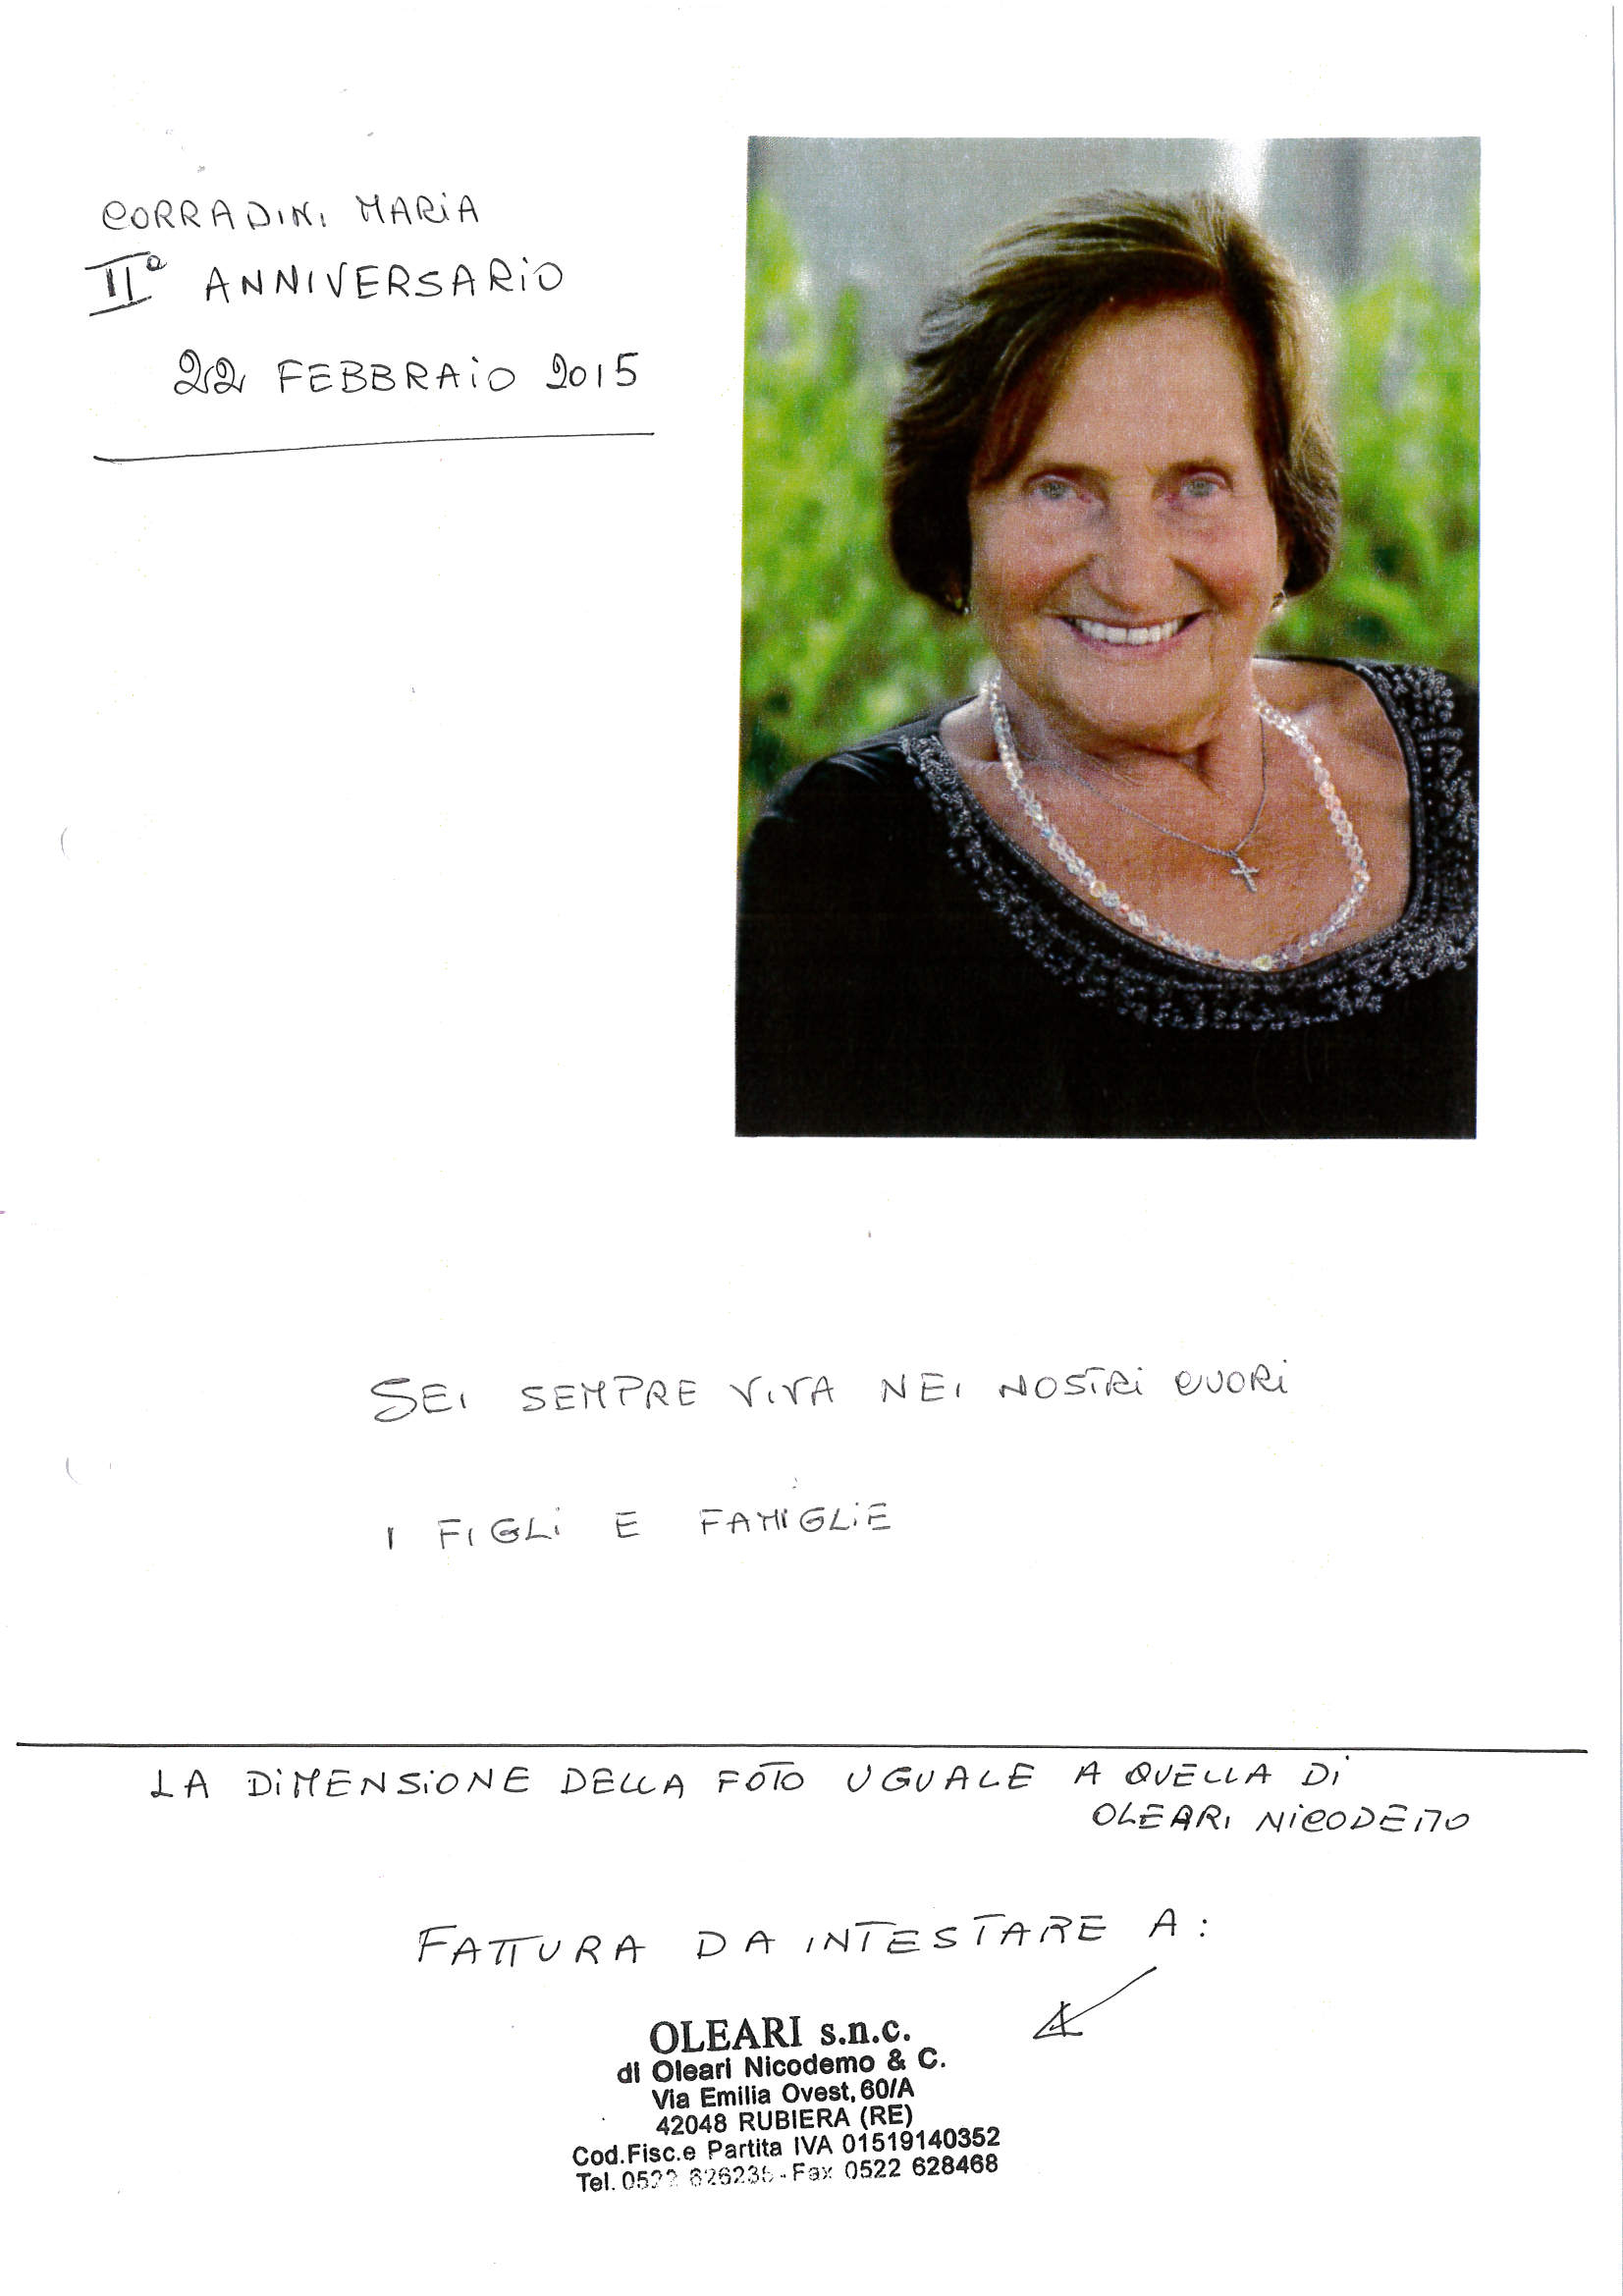 CORRADINI MARIA
IIº ANNIVERSARIO
22 FEBBRAIO 2015
SEI SEMPRE VIVA NEI NOSTRI CUORI
I FIGLI E FAMIGLIE
LA DIMENSIONE DELLA FOTO UGUALE A QUELLA DI
OLEARI NICODEMO
FATTURA DA INTESTARE A:
OLEARI s.n.c.
di Oleari Nicodemo & C.
Via Emilia Ovest, 60/A
42048 RUBIERA (RE)
Cod.Fisc.e Partita IVA 01519140352
Tel. - Fax 0522 628468